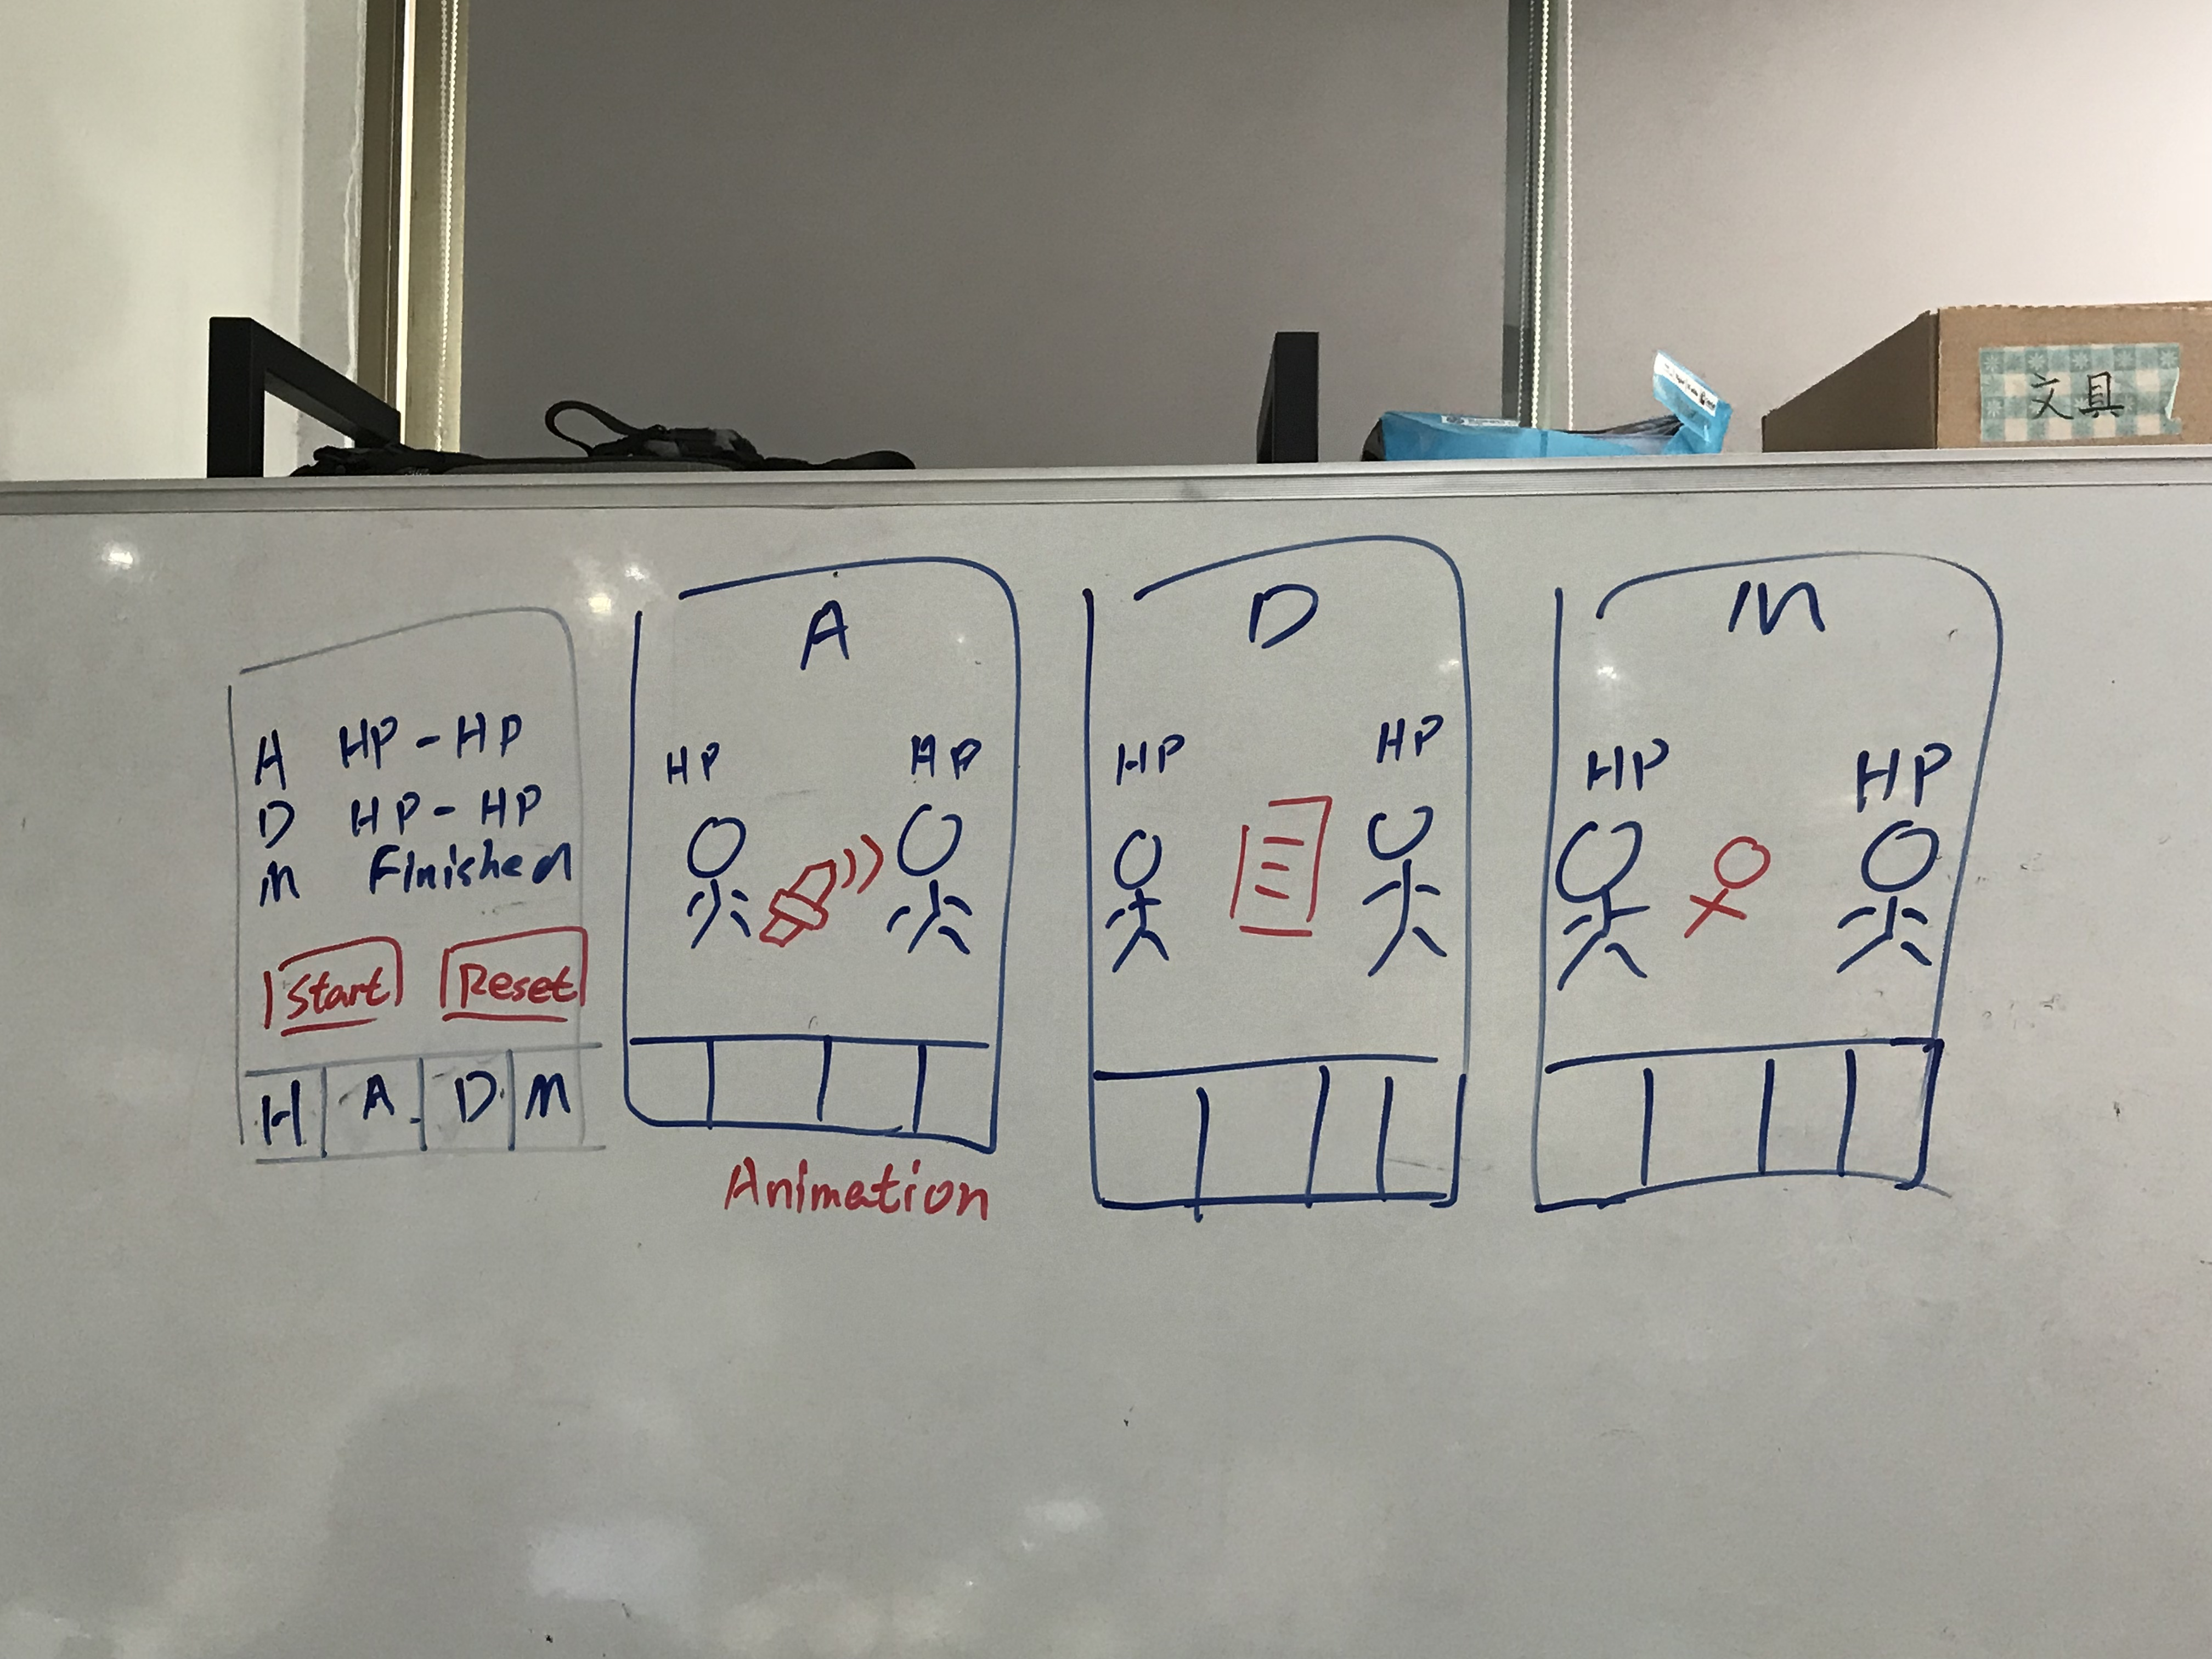 文具
A HP - HP
D HP - HP
M Finished
Start Reset
H A D M
A
HP HP
Animation
D
HP HP
M
HP HP